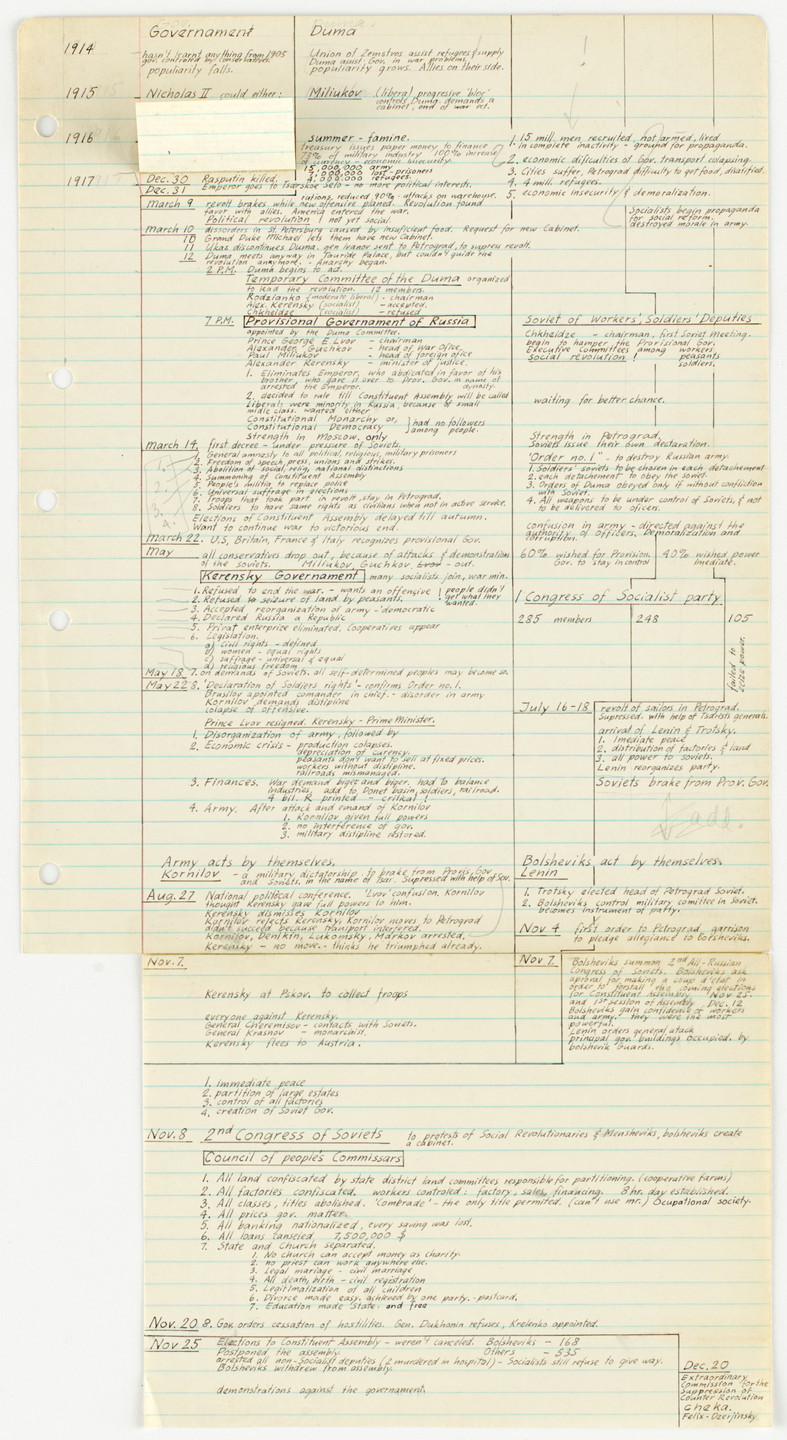 Governament
Duma
1914
hasn't learnt anything from 1905
gov. controled by conservatives.
populiarity falls.
Union of Zemstvos assist refugees & supply
Duma assist. Gov. in war problems,
populiarity grows. Allies on their side.
1915
Nicholas II could either:
Miliukov (liberal) progresive 'bloc'
controls Duma, demands a
cabinet, end of war ect.
1916
summer - famine.
treasury issues paper money to finance
73% of military industry 100% increase
of currency - economic insecurity.
15,000,000 army
2,000,000 lost - prisoners
4,000,000 refugees.
1. 15 mill. men recruited, not armed, lived
in complete inactivity - ground for propaganda.
2. economic difficulties of Gov. transport colapsing.
3. Cities suffer, Petrograd difficulty to get food, disatified.
4. 4 mill. refugees.
5. economic insecurity & demoralization.
1917
Dec. 30 Rasputin killed,
Dec. 31 Emperor goes to Tsarskoe Selo - no more political interests.
rations, reduced 90% - attacks on warehouse.
March 9 revolt brakes while new offensive planed. Revolution found
favor with allies. America entered the war.
Political revolution ! not yet social
Socialists begin propaganda
for social reform,
destroyed morale in army.
March 10 dissorders in St. Petersburg caused by insufficient food. Request for new Cabinet.
10 Grand Duke Michael lets them have new Cabinet.
11 Ukas discontinues Duma, gen Ivanov sent to Petrograd, to supress revolt.
12 Duma meets anyway in Tauride Palace, but couldn't guide the
revolution anymore. - Anarchy began.
2 P.M. Duma begins to act.
Temporary Committee of the Duma organized
to lead the revolution. 12 members.
Rodzianko (moderate liberal) - chairman
Alex. Kerensky (socialist) - accepted.
Chkheidze (socialist) - refused
7 P.M. Provisional Governament of Russia
appointed by the Duma Committee.
Prince George E Lvov - chairman
Alexander Guchkov - head of War Ofice,
Paul Miliukov - head of foreign ofice
Alexander Kerensky - minister of justice.
1. Eliminates Emperor, who abdicated in favor of his
brother, who gave it over to Prov. Gov. in name of
arrested the Emperor. dynasty.
2. decided to rule till Constituent Assembly will be called
Liberals were minority in Russia, because of small
midle class. wanted either
Constitutional Monarchy or,
Constitutional Democracy
had no followers
among people.
Strength in Moscow, only
Soviet of Workers', Soldiers' Deputies
Chkheidze - chairman, first Soviet Meeting.
begin to hamper the Provisional Gov.
Executive Committees among workers.
social revolution ! peasants
soldiers.
waiting for better chance.
March 14, first decree - under pressure of Soviets.
1. General amnesty to all political, religious, military prisoners
2. Freedom of speech press, unions and strikes.
3. Abolition of social, relig, national distinctions
4. Summoning of Constituent Assembly
5. People's militia to replace police
6. Universal suffrage in elections
7. Troops that took part in revolt, stay in Petrograd.
8. Soldiers to have same rights as civilians when not in active service.
Elections of Constituent Assembly delayed till autumn.
Want to continue war to victorious end.
1.
2.
3.
4.
Strength in Petrograd,
Soviets issue their own declaration.
'Order no. 1.' - to destroy Russian army.
1. Soldiers' soviets to be chosen in each detachement
2. each detachement to obey the soviet.
3. Orders of Duma obeyed only if without confliction
with Soviet.
4. All weapons to be under control of Soviets, & not
to be delivered to oficers.
confusion in army - directed against the
authority of officers, Demoralization and
corruption.
March 22. U.S, Britain, France & Italy recognizes provisional Gov.
60% wished for Provision.
Gov. to stay in control
40% wished power
Imediate.
May all conservatives drop out, because of attacks & demonstrations
of the soviets. Miliukov, Guchkov, Lvov - out.
Kerensky Governament many socialists join, war min.
1. Refused to end the war. - wants an offensive
2. Refused to seizure of land by peasants.
! people didn't
get what they
wanted.
3. Accepted reorganization of army - 'democratic
4. Declared Russia a Republic
5. Privat enterprize eliminated, Cooperatives appear
6. Legislation.
a) civil rights - defined
b) women - equal rights
c) suffrage - universal & equal
d) religious freedom
May 18 7. on demands of Soviets, all self-determined peoples may become so.
May 22 8. 'Declaration of Soldiers rights' - confirms Order no. 1.
Brusilov apointed comander in chief. - disorder in army
Kornilov demands distipline
colapse of offensive.
Prince Lvov resigned. Kerensky - Prime Minister.
1. Disorganization of army, followed by
2. Economic crisis - production colapses.
depreciation of curency.
peasants don't want to sell at fixed prices.
workers without distipline.
railroads mismanaged.
3. Finances. War demand biger and biger, had to balance
industries, add to Donet basin, soldiers, railroad.
4 bil. R printed - critical !
4. Army. After attack and emand of Kornilov
1. Kornilov given full powers
2. no interference of gov.
3. military distipline restored.
! Congress of Socialist party
285 members
248
105
failed to
seize power.
July 16-18 revolt of sailors in Petrograd.
Supressed. with help of Tsarists generals.
arrival of Lenin & Trotsky.
1. Imediate peace
2. distribution of factories & land
3. all power to soviets.
Lenin reorganizes party.
Soviets brake from Prov. Gov.
Army acts by themselves.
Kornilov - a military dictatorship to brake from Provis, Gov
and Soviets, in the name of Tsar. Supressed with help of Sov.
Bolsheviks act by themselves.
Lenin
1. Trotsky elected head of Petrograd Soviet.
2. Bolsheviks control military comittee in Soviet.
becomes instrument of party.
Aug. 27 National political conference. 'Lvov' confusion. Kornilov
thought Kerensky gave full powers to him.
Kerensky dismisses Kornilov
Kornilov rejects Kerensky, Kornilov moves to Petrograd
didn't succeed because transport interfered.
Kornilov, Denikin, Lukomsky, Markov arrested,
Kerensky - no move. - thinks he triumphed already.
Nov 4 first order to Petrograd, garrison
to pledge allegiance to Bolsheviks.
Nov. 7.
Kerensky at Pskov. to collect troops
everyone against Kerensky.
General Cheremisov - contacts with Soviets.
General Krasnov - monarchist.
Kerensky flees to Austria.
Nov 7 Bolsheviks summon 2nd All-Russian
Congress of Soviets. Bolsheviks ask
aproval for making a coup d'etat in
order to forstall the coming elections
for Constituent Assembly Nov 25.
and 1st session of Assembly Dec. 12
Bolsheviks gain confidence of workers
and army. they were the most
powerful.
Lenin orders general atack
principal gov. buildings occupied. by
bolshevik guards.
1. immediate peace
2. partition of large estates
3. control of all factories
4. creation of Soviet Gov.
Nov. 8 2nd Congress of Soviets to protests of Social Revolutionaries & Mensheviks, bolsheviks create
a cabinet.
Council of people's Commissars
1. All land confiscated by state district land committees responsible for partitioning. (cooperative farms)
2. All factories confiscated. workers controled: factory, sales, financing. 8 hr. day established.
3. All classes, titles abolished. 'Combrade' - the only title permited. (can't use mr.) Ocupational society.
4. All prices gov. matter.
5. All banking nationalized, every saving was lost.
6. All loans canseled 7,500,000 $
7. State and Church separated.
1. No church can accept money as charity.
2. no priest can work anywhere else.
3. Legal mariage - civil marriage
4. All death, birth - civil registration
5. Legitimalization of all children
6. Divorce made easy. achieved by one party. - postcard.
7. Education made State. and free
Nov. 20 8. Gov. orders cessation of hostilities. Gen. Dukhonin refuses, Krelenko appointed.
Nov 25 Elections to Constituent Assembly - weren't canceled. Bolsheviks - 168
Postponed the assembly. Others - 535
arrested all non-Socialist deputies (2 murdered in hospital) - Socialists still refuse to give way.
Bolsheviks withdrew from assembly.
demonstrations against the governament.
Dec. 20
Extraordinary
Commission for the
Suppression of
Counter Revolution
Cheka.
Felix - Dzerjinsky.